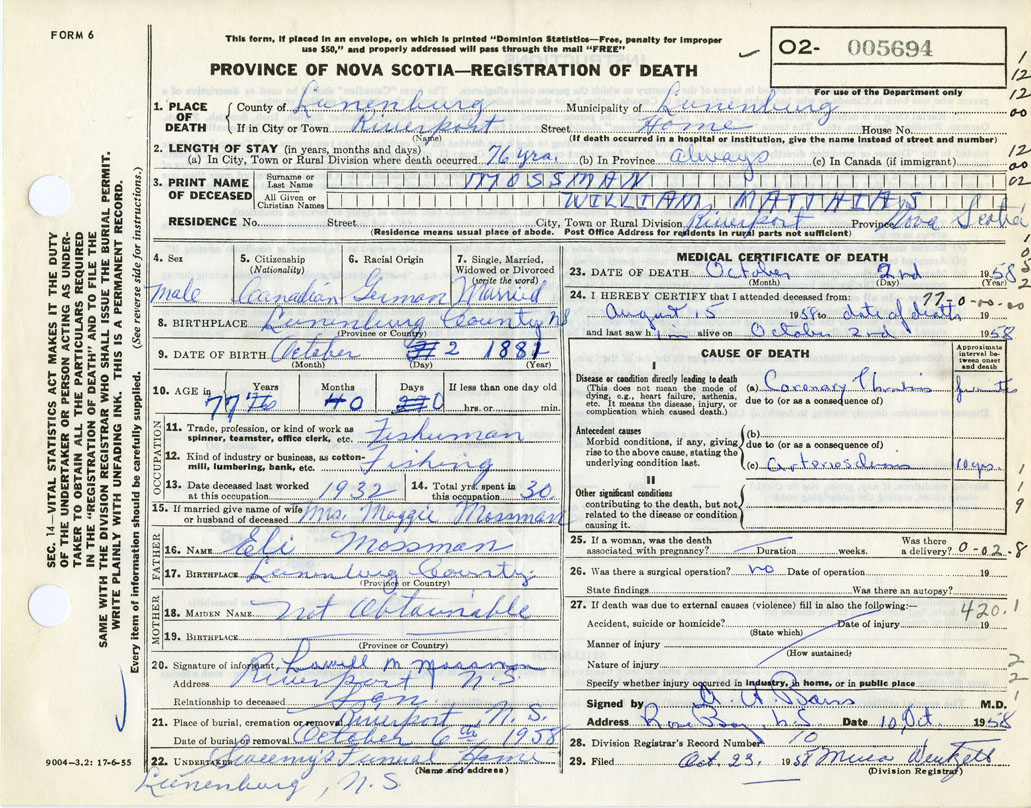 FORM 6
This form, if placed in an envelope, on which is printed "Dominion Statistics—Free, penalty for improper
use $50," and properly addressed will pass through the mail "FREE"
PROVINCE OF NOVA SCOTIA—REGISTRATION OF DEATH
02- 005694
For use of the Department only
1. PLACE OF DEATH
County of Lunenburg Municipality of Lunenburg
If in City or Town Riverport Street Home House No.
(Name) (If death occurred in a hospital or institution, give the name instead of street and number)
2. LENGTH OF STAY (in years, months and days)
(a) In City, Town or Rural Division where death occurred 76 yrs. (b) In Province always (c) In Canada (if immigrant)
3. PRINT NAME OF DECEASED
Surname or Last Name MOSSMAN
All Given or Christian Names WILLIAM MATTHIAS
RESIDENCE No. Street City, Town or Rural Division Riverport Province Nova Scotia
(Residence means usual place of abode. Post Office Address for residents in rural parts not sufficient)
4. Sex Male
5. Citizenship (Nationality) Canadian
6. Racial Origin German
7. Single, Married, Widowed or Divorced (write the word) Married
8. BIRTHPLACE Lunenburg County NS
(Province or Country)
9. DATE OF BIRTH October 2 1881
(Month) (Day) (Year)
10. AGE in Years Months Days If less than one day old
77 0 0 hrs. or min.
OCCUPATION
11. Trade, profession, or kind of work as spinner, teamster, office clerk, etc. Fisherman
12. Kind of industry or business, as cotton-mill, lumbering, bank, etc. Fishing
13. Date deceased last worked at this occupation 1932
14. Total yrs. spent in this occupation 30.
15. If married give name of wife or husband of deceased Mrs. Maggie Mossman
FATHER
16. NAME Eli Mossman
17. BIRTHPLACE Lunenburg County
(Province or Country)
MOTHER
18. MAIDEN NAME Not Obtainable
19. BIRTHPLACE
(Province or Country)
20. Signature of informant, Lowell M. Mossman
Address Riverport, N.S.
Relationship to deceased Son
21. Place of burial, cremation or removal Riverport, N.S.
Date of burial or removal October 6th 1958
22. UNDERTAKER Sweeny's Funeral Home
(Name and address)
Lunenburg, N.S.
9004—3.2: 17-6-55
SEC. 14—VITAL STATISTICS ACT MAKES IT THE DUTY
OF THE UNDERTAKER OR PERSON ACTING AS UNDER-
TAKER TO OBTAIN ALL THE PARTICULARS REQUIRED
IN THE "REGISTRATION OF DEATH" AND TO FILE THE
SAME WITH THE DIVISION REGISTRAR WHO SHALL ISSUE THE BURIAL PERMIT.
WRITE PLAINLY WITH UNFADING INK. THIS IS A PERMANENT RECORD.
Every item of information should be carefully supplied. (See reverse side for instructions.)
MEDICAL CERTIFICATE OF DEATH
23. DATE OF DEATH October 2nd 1958
(Month) (Day) (Year)
77-0-00-00
24. I HEREBY CERTIFY that I attended deceased from:
August 15 1958 to date of death
and last saw him alive on October 2nd 1958
CAUSE OF DEATH
Approximate interval between onset and death
I
Disease or condition directly leading to death (a) Coronary Thrombosis
(This does not mean the mode of dying, e.g., heart failure, asthenia, etc. It means the disease, injury, or complication which caused death.)
due to (or as a consequence of)
Antecedent causes (b)
Morbid conditions, if any, giving rise to the above cause, stating the underlying condition last.
due to (or as a consequence of)
(c) Arteriosclerosis 10 yrs.
II
Other significant conditions contributing to the death, but not related to the disease or condition causing it.
25. If a woman, was the death associated with pregnancy? Duration weeks. Was there a delivery?
0-02-8
26. Was there a surgical operation? no Date of operation 19
State findings Was there an autopsy?
27. If death was due to external causes (violence) fill in also the following:—
420.1
Accident, suicide or homicide? Date of injury 19
(State which)
Manner of injury
(How sustained)
Nature of injury
Specify whether injury occurred in industry, in home, or in public place
Signed by M.D.
Address Rose Bay, N.S Date 10, Oct. 1958
28. Division Registrar's Record Number 10
29. Filed Oct. 23, 1958
(Division Registrar)